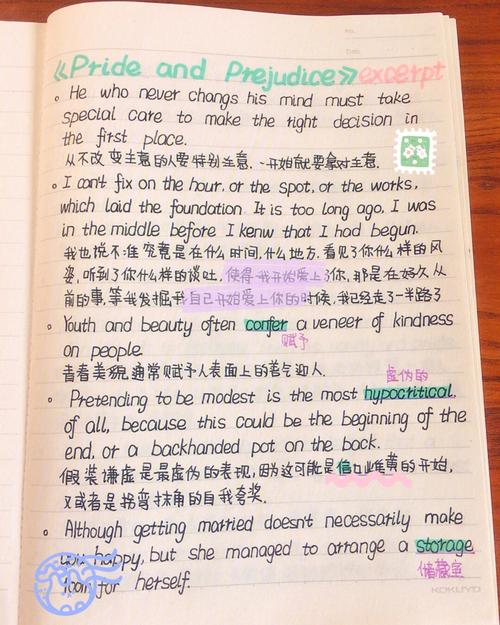 No.
Date.
《Pride and Prejudice》excerpt
He who never changs his mind must take
special care to make the right decision in
the first place.
从不改变主意的人要特别注意，一开始就要拿对主意.
I can't fix on the hour, or the spot, or the works,
which laid the foundation. It is too long ago. I was
in the middle before I kenw that I had begun.
我也说不准究竟是在什么时间,什么地方.看见了你什么样的风
姿,听到了你什么样的谈吐,使得我开始爱上了你,那是在好久从
前的事,等我发掘我自己开始爱上你的时候,我已经走了一半路了
Youth and beauty often confer a veneer of kindness
赋予
on people.
青春美貌通常赋予人表面上的善气迎人.
虚伪的
Pretending to be modest is the most hypocritical.
of all, because this could be the beginning of the
end, or a backhanded pot on the back.
假装谦虚是最虚伪的表现,因为这可能是信口雌黄的开始,
又或者是拐弯抹角的自我夸奖.
Although getting married doesn't necessarily make
you happy, but she managed to arrange a storage
储藏室
room for herself.
KOKUYO